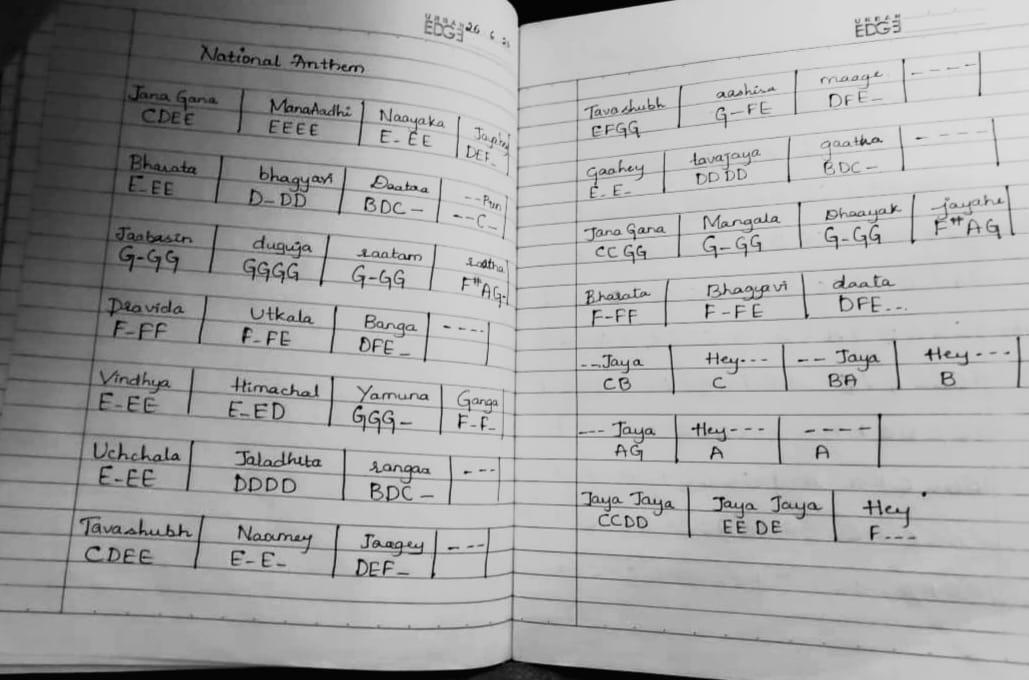 URBAN EDGE 26 6
National Anthem
Jana Gana | ManaAadhi | Naayaka |
CDEE | EEEE | E-EE | DEF-
Bharata | bhagyavi | Daataa | --Pun
E-EE | D-DD | BDC- | --C-
Jaabasin | duguja | raatam | ratha
G-GG | GGGG | G-GG | F#AG-
Dravida | Utkala | Banga | ----
F-FF | F-FE | DFE-
Vindhya | Himachal | Yamuna | Ganga
E-EE | E-ED | GGG- | F-F-
Uchchala | Jaladhita | rangaa | ----
E-EE | DDDD | BDC-
Tavashubh | Naamey | Jaagey | ---
CDEE | E-E- | DEF-
URBAN EDGE
Tavashubh | aashisa | maage | ----
EFGG | G-FE | DFE-
gaahey | tavajaya | gaatha | ----
E-E- | DDDD | BDC-
Jana Gana | Mangala | Dhaayak | jayahe
CCGG | G-GG | G-GG | F#AG
Bharata | Bhagyavi | daata
F-FF | F-FE | DFE...
---Jaya | Hey--- | -- Jaya | Hey ---
CB | C | BA | B
--- Jaya | Hey--- | ----
AG | A | A
Jaya Jaya | Jaya Jaya | Hey
CCDD | EE DE | F---